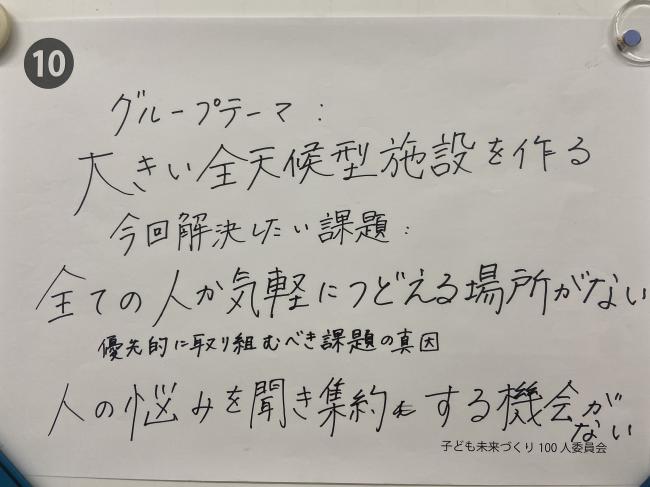 10
グループテーマ:
大きい全天候型施設を作る
今回解決したい課題:
全ての人が気軽につどえる場所がない
優先的に取り組むべき課題の真因
人の悩みを聞き集約をする機会が
ない
子ども未来づくり100人委員会